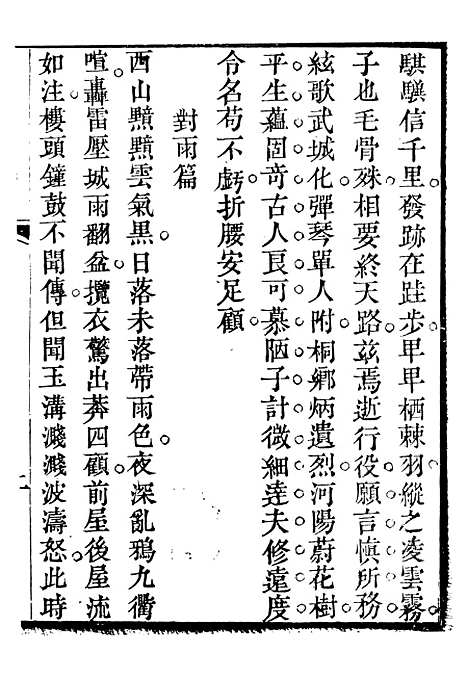 騏驥信千里發跡在跬步早早栖棘羽縱之凌雲霧
子也毛骨殊相要終天路茲焉逝行役願言慎所務
絃歌武城化彈琴單人附桐鄉炳遺烈河陽蔚花樹
平生蘊固奇古人良可慕陋子計微細達夫修遠度
令名苟不虧折腰安足顧
對雨篇
西山黯黯雲氣黑日落未落帶雨色夜深亂鴉九衢
喧轟雷壓城雨翻盆攬衣驚出莽四顧前屋後屋流
如注樓頭鐘鼓不聞傳但聞玉溝濺濺波濤怒此時